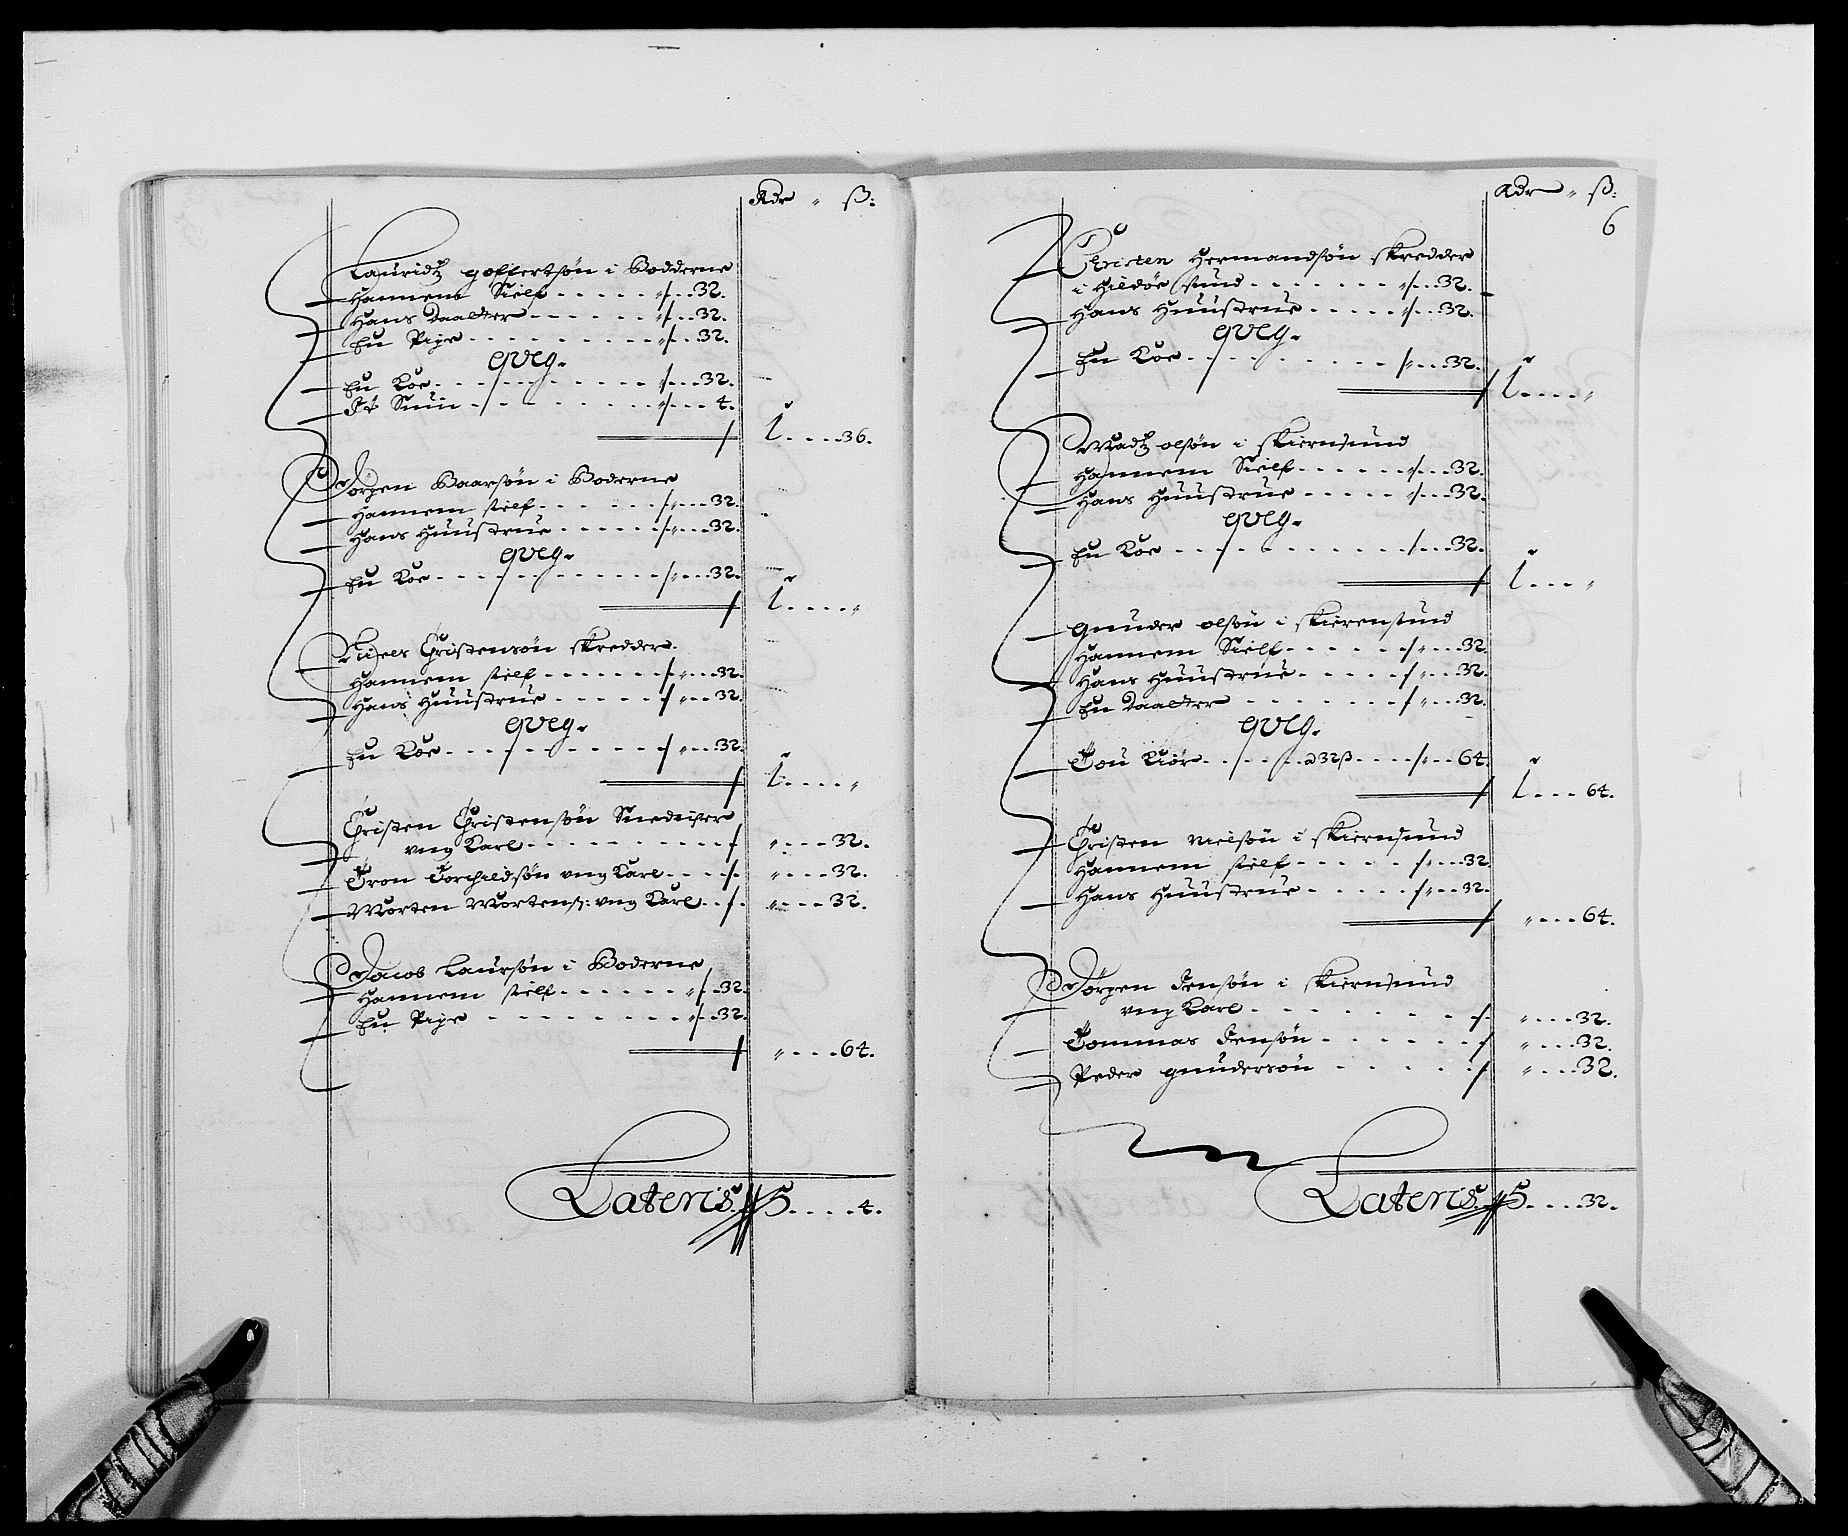 Rdr " ß:
Lauridtz goffertsøn i Bodderne
Hannem Sielf - - - - - " - - 32.
Hans Daatter - - - - - " - - 32.
En Pige - - - - - - - " - - 32.
qveg.
En Koe - - - - - - - " - - 32.
Et Suin - - - - - - - " - - 4.
1 - - - - 36.
Jørgen Baarsøn i Boderne
Hannem sielf - - - - - " - - 32.
Hans Huustrue - - - - - " - - 32.
qveg.
En Koe - - - - - - - " - - 32.
1 - - - - "
Niels Christensøn skredder.
Hannem sielf - - - - - " - - 32.
Hans Huustrue - - - - - " - - 32.
qveg.
En Koe - - - - - - - " - - 32.
1 - - - - "
Christen Christensøn Snedicher
vng Karl - - - - - - - " - - - - 32.
Tron Torchildsøn vng Karl - - - " - - - - 32.
Morten Mortens: vng Karl - - " - - - - 32.
Jacob Laursøn i Boderne
Hannem sielf - - - - - " - - 32.
En Pige - - - - - - - " - - 32.
" - - - - 64.
Lateris 5 - - - - 4.
Rdr " ß:
6
Christen Hermandsøn skredder
i Hildøe sund - - - - - - " - - 32.
Hans Huustrue - - - - - " - - 32.
qveg.
En Koe - - - - - - - " - - 32.
1 - - - - "
Madtz olsøn i skiernsund
Hannem Sielf - - - - - " - - 32.
Hans Huustrue - - - - - " - - 32.
qveg.
En Koe - - - - - - - - - 32.
1 - - - "
Gunder olsøn i skierensund
Hannem Sielf - - - - - " - - 32.
Hans Huustrue - - - - - " - - 32.
En Daatter - - - - - - " - - 32.
qveg.
Tou Kiør - - - - a 32ß - - - - " - - 64.
1 - - - 64.
Christen Nielsøn i skiernsund
Hannem sielf - - - - - " - - 32
Hans Huustrue - - - - - " - - 32.
" - - - 64.
Jørgen Jensøn i skiernsund
vng Karl - - - - - - - " - - - 32.
Tommas Jensøn - - - - - - " - - - 32.
Peder gundersøn - - - - - " - - - 32.
Lateris 5 - - - 32.